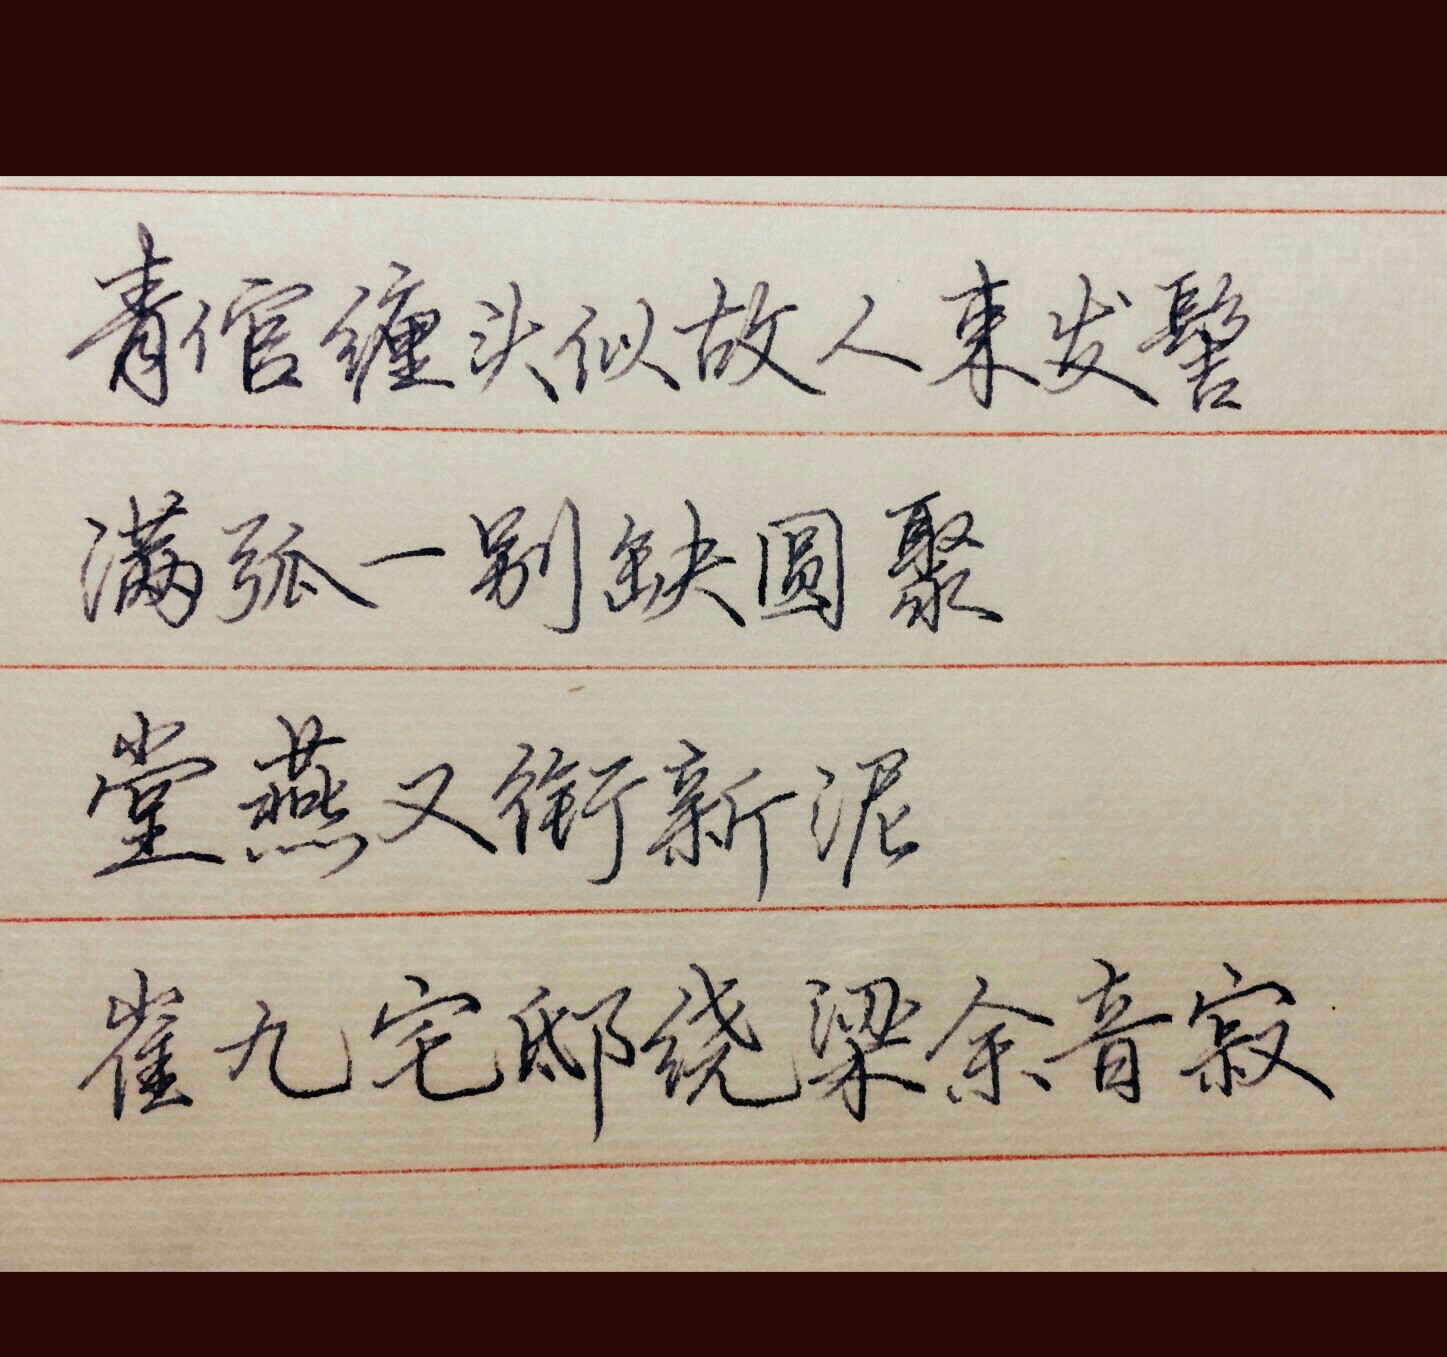 青倌缠头似故人束发髻
满弧一别缺圆聚
堂燕又衔新泥
崔九宅邸绕梁余音寂